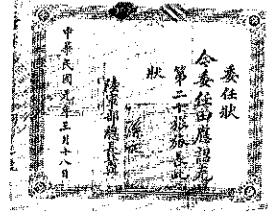 委任狀
今委任田應詔充
第二十旅旅長此
狀
陸軍部總長黃
中華民國元年三月十八日